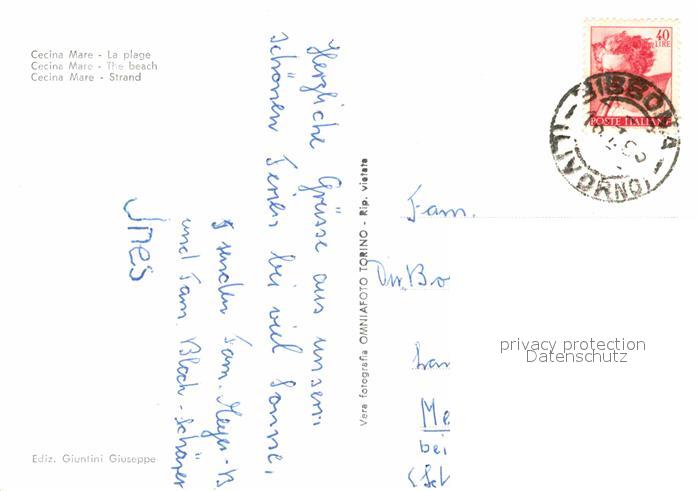 Cecina Mare - La plage
Cecina Mare - The beach
Cecina Mare - Strand
Herzliche Grüsse aus unsern
schönen Ferien bei viel Sonne,
senden Fam. Meyer-B
und Fam. Bloch-Schärer
Ines
Ediz. Giuntini Giuseppe
Vera fotografia OMNIAFOTO TORINO - Rip. vietata
40
LIRE
POSTE ITALIANE
BIBBONA
(LIVORNO)
Fam.
Dir. Bo
Me
bei
privacy protection
Datenschutz